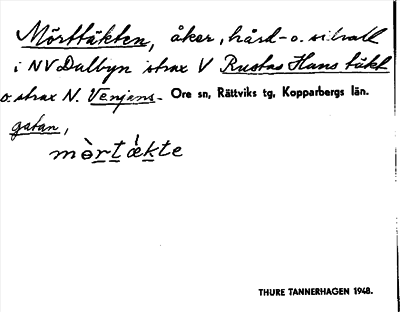 Mörttäkten, åker, hård- o. sidvall
i NV Dalbyn strax V Rustas Hans täkt
o. strax N. Venjans- Ore sn, Rättviks tg, Kopparbergs län.
gatan,
mö̀rtækte
THURE TANNERHAGEN 1948.